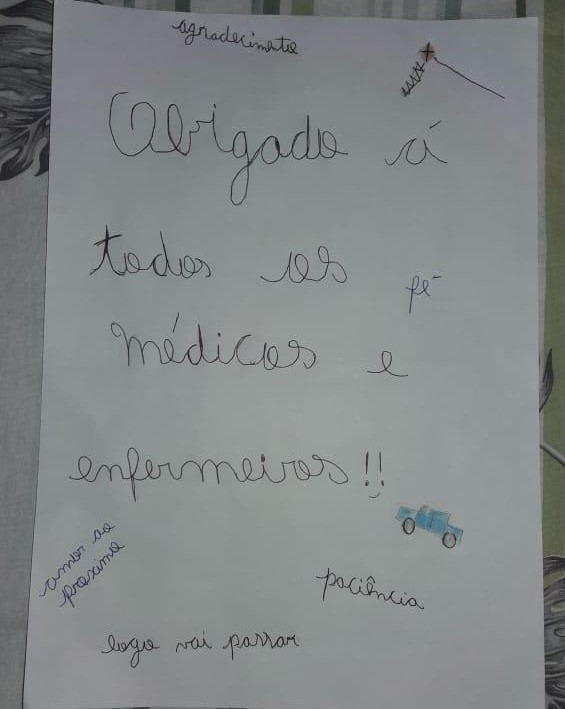 agradecimento
Obrigado á
todos os
fé
médicos e
enfermeiros!!
amor ao
proximo
paciência
logo vai passar